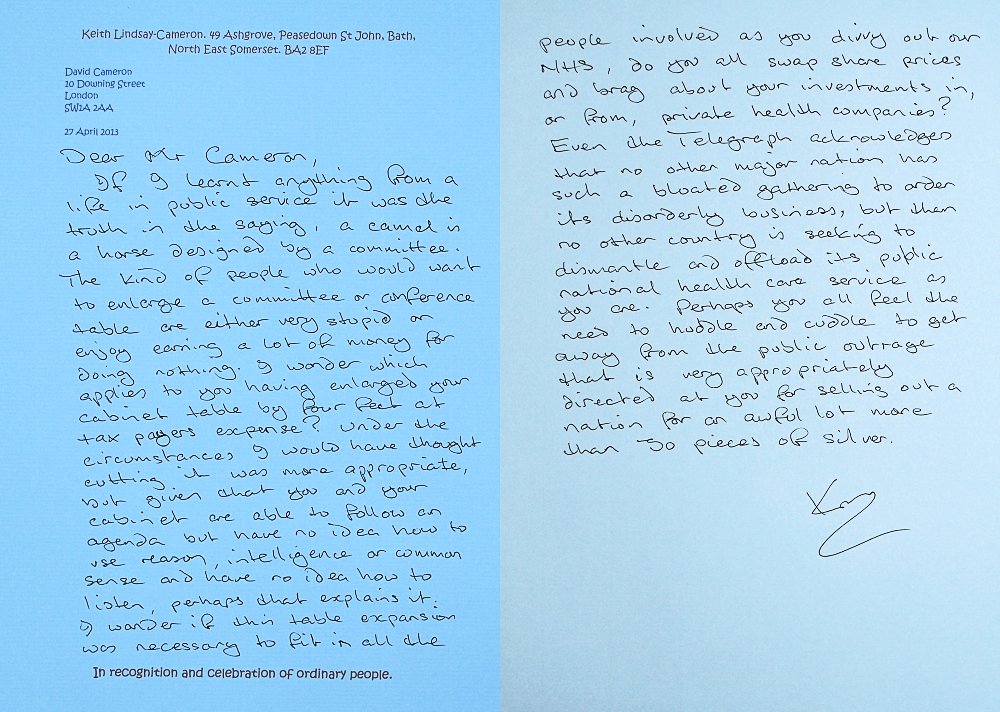 Keith Lindsay-Cameron. 49 Ashgrove, Peasedown St John, Bath,
North East Somerset. BA2 8EF
David Cameron
10 Downing Street
London
SW1A 2AA
27 April 2013
Dear Mr Cameron,
If I learnt anything from a
life in public service it was the
truth in the saying, a camel is
a horse designed by a committee.
The kind of people who would want
to enlarge a committee or conference
table are either very stupid or
enjoy earning a lot of money for
doing nothing. I wonder which
applies to you having enlarged your
cabinet table by four feet at
tax payers expense? Under the
circumstances I would have thought
cutting it was more appropriate,
but given that you and your
cabinet are able to follow an
agenda but have no idea how to
use reason, intelligence or common
sense and have no idea how to
listen, perhaps that explains it.
I wonder if this table expansion
was necessary to fit in all the
In recognition and celebration of ordinary people.
people involved as you divvy out our
NHS, do you all swap share prices
and brag about your investments in,
or from, private health companies?
Even the Telegraph acknowledges
that no other major nation has
such a bloated gathering to order
its disorderly business, but then
no other country is seeking to
dismantle and offload its public
national health care service as
you are. Perhaps you all feel the
need to huddle and cuddle to get
away from the public outrage
that is very appropriately
directed at you for selling out a
nation for an awful lot more
than 30 pieces of silver.